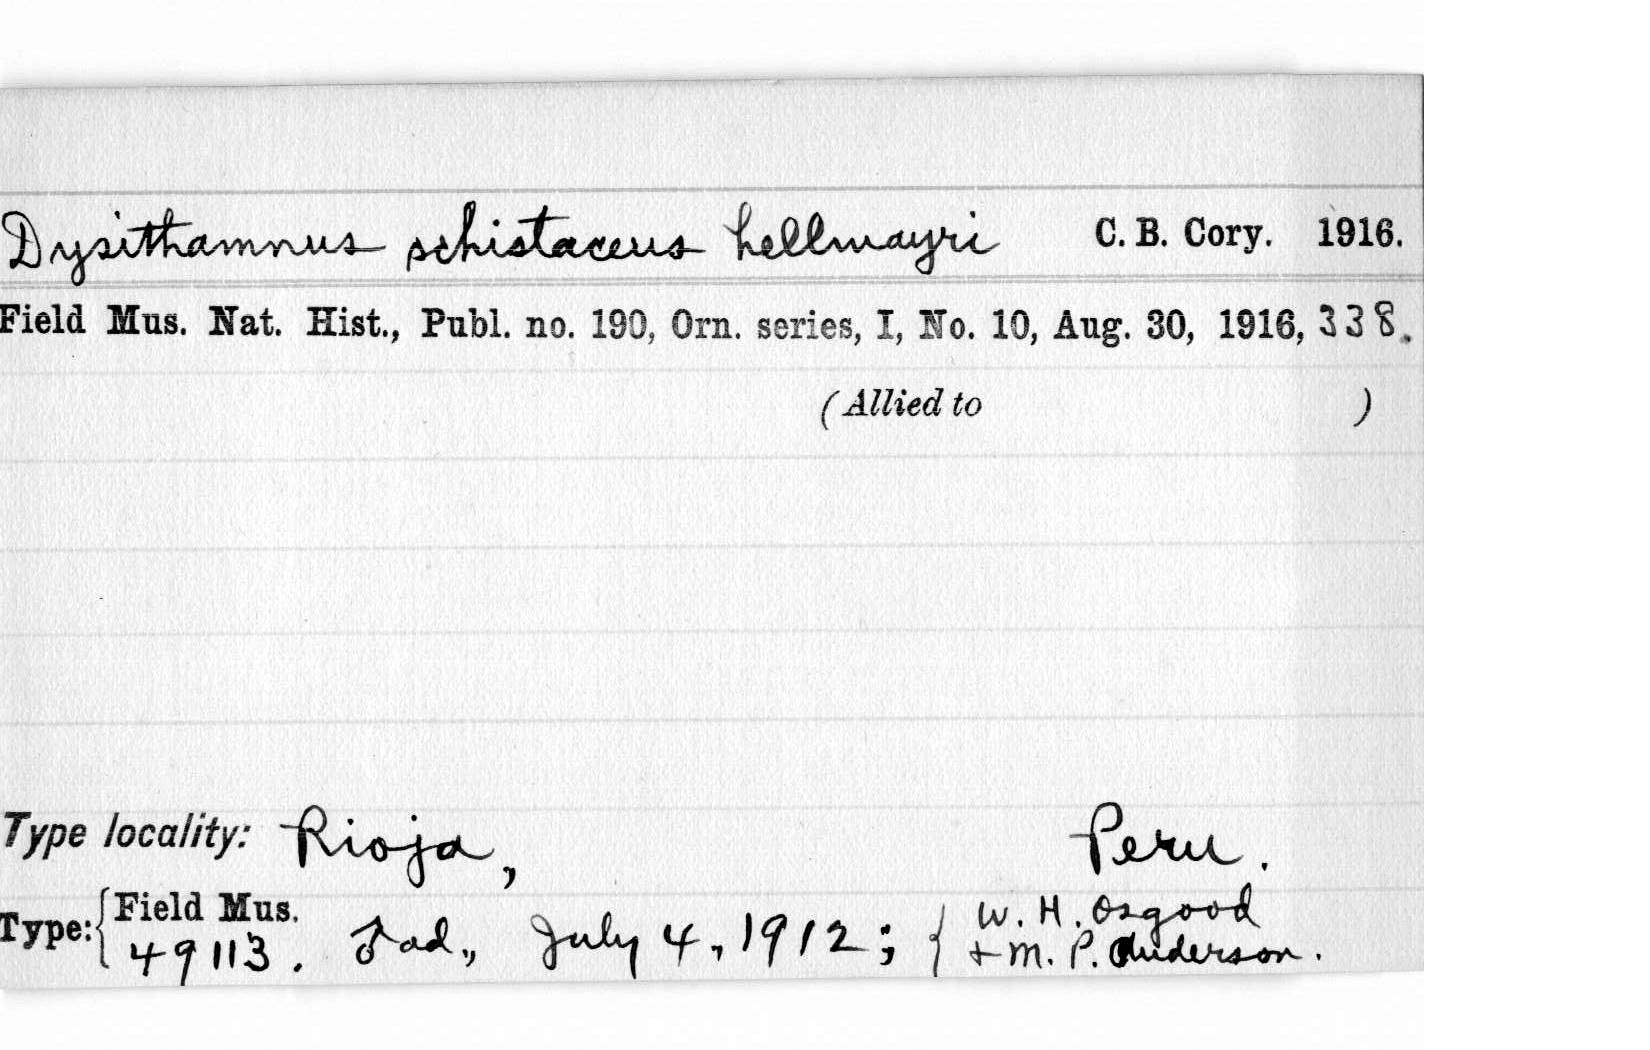 Dysithamnus schistaceus hellmayri C. B. Cory. 1916.
Field Mus. Nat. Hist., Publ. no. 190, Orn. series, I, No. 10, Aug. 30, 1916, 338.
(Allied to )
Type locality: Rioja, Peru.
Type: { Field Mus. 49113. ♂ ad., July 4, 1912; { W. H. Osgood
+ M. P. Anderson.